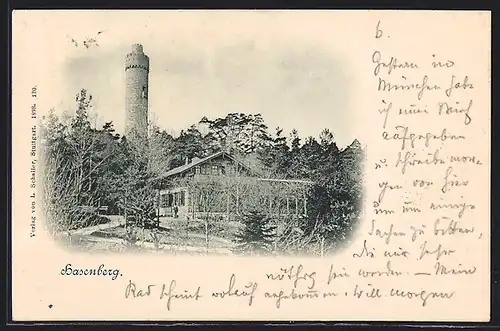 Verlag von L. Schaller, Stuttgart. 1898. 170.
Hasenberg.
6.
Gestern in
München habe
ich nun mich
aufgegeben
u. schreibe mor-
gen von hier
um um einige
Sachen zu bitten
die mir sehr
nöthig sie worden. — Mein
Rad scheint wohlauf angekommen. Will morgen